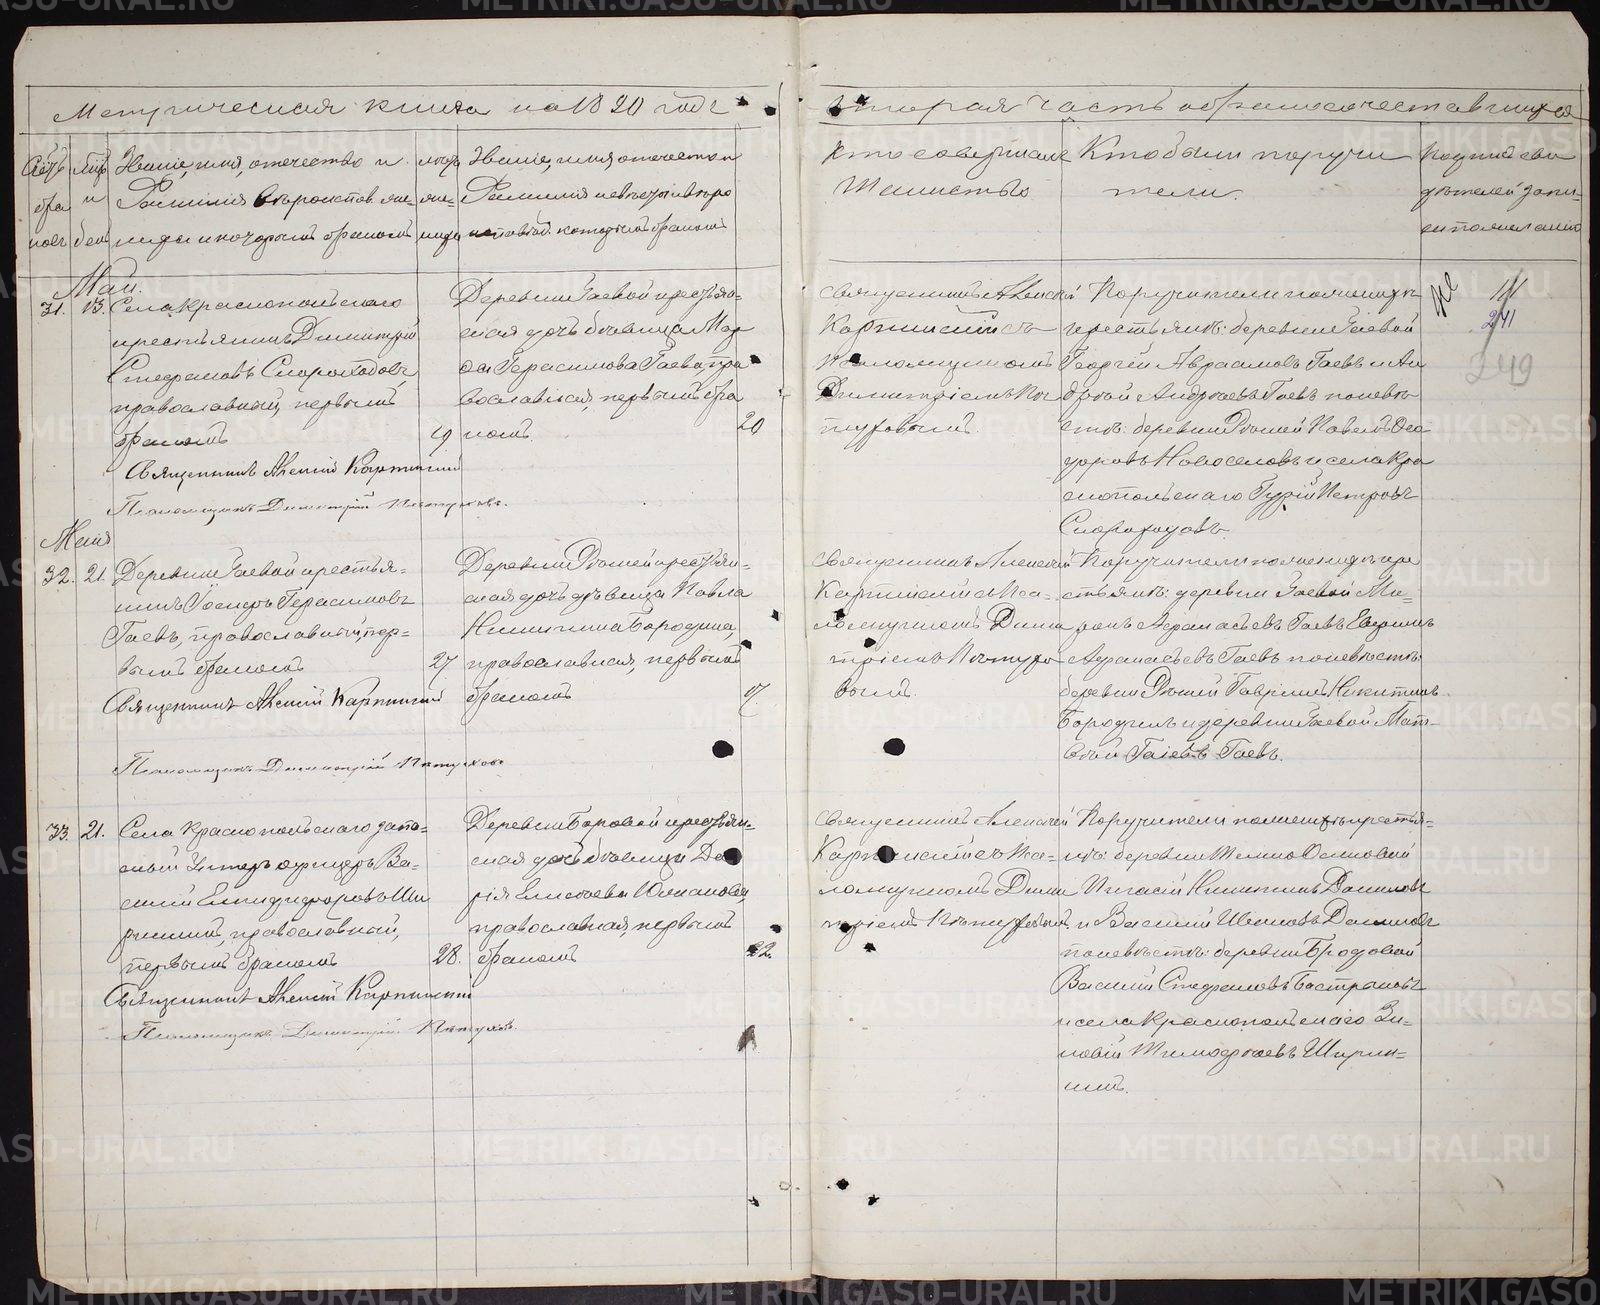 Метрическая книга на 1920 годъ
вторая часть о бракосочетавшихся
Счетъ браковъ
Мцъ и день
Званiе, имя, отечество и
Фамилiя
жениха и которымъ бракомъ
Званiе, имя, отечество и
Фамилiя невесты
которымъ бракомъ
Кто совершалъ
Таинство
Кто были поручи
тели.
Май.
31. 13. Села Краснопольскаго
крестьянинъ Димитрiй
Стефановъ Скороходовъ
православный, первымъ
бракомъ
19
Священникъ Алексiй Карпинскiй
Псаломщикъ Димитрiй Петуховъ.
Деревни Гаевой крестьян-
ская дочь девица Мар
фа Герасимова Гаева, пра
вославная, первымъ бра
комъ.
20
Священникъ Алексiй
Карпинскiй съ
псаломщикомъ
Димитрiемъ Пе
туховымъ.
Поручители по женихе
крестьяне: деревни Гаевой
Георгiй Авраамовъ Гаевъ и Ан
дрей Андреевъ Гаевъ по неве
сте: деревни Павелъ Фео
доровъ Новоселовъ и села Кра
снопольскаго Гурiй Петровъ
Скороходовъ.
141
241
249
32. 21. Деревни Гаевой крестья-
нинъ Iосифъ Герасимовъ
Гаевъ, православный, пер-
вымъ бракомъ
27
Священникъ Алексiй Карпинскiй
Псаломщикъ Димитрiй Петуховъ
Деревни крестьян-
ская дочь девица Павла
Никитина Бородина,
православная, первымъ
бракомъ
17.
Священникъ Алексiй
Карпинскiй съ Пса-
ломщикомъ Дими
трiемъ Петухо
вымъ.
Поручители по женихе кре
стьяне: деревни Гаевой
Афанасьевъ Гаевъ
Афанасьевъ Гаевъ по невесте:
деревни Гаврiилъ Никитинъ
Бородинъ и деревни Гаевой Мат-
вей Гаевъ.
33. 21. Села Краснопольскаго запа-
сный унтеръ офицеръ Ва-
силiй Елпидифоровъ Ши
ринкинъ, православный,
первымъ бракомъ
28.
Священникъ Алексiй Карпинскiй
Псаломщикъ Димитрiй Петуховъ.
Деревни Боровой крестьян-
ская дочь девица Да
рiя Елисеева
православная, первымъ
бракомъ
22.
Священникъ Алексiй
Карпинскiй съ Пса-
ломщикомъ Дими
трiемъ Петуховымъ
Поручители по женихе крестья-
не: деревни
Никитинъ Даниловъ
и Василiй Ивановъ Даниловъ
по невесте: деревни Бродовой
Василiй Стефановъ
и села Краснопольскаго Зи-
новiй Тимофеевъ Ширин-
кинъ.
METRIKI.GASO-URAL.RU